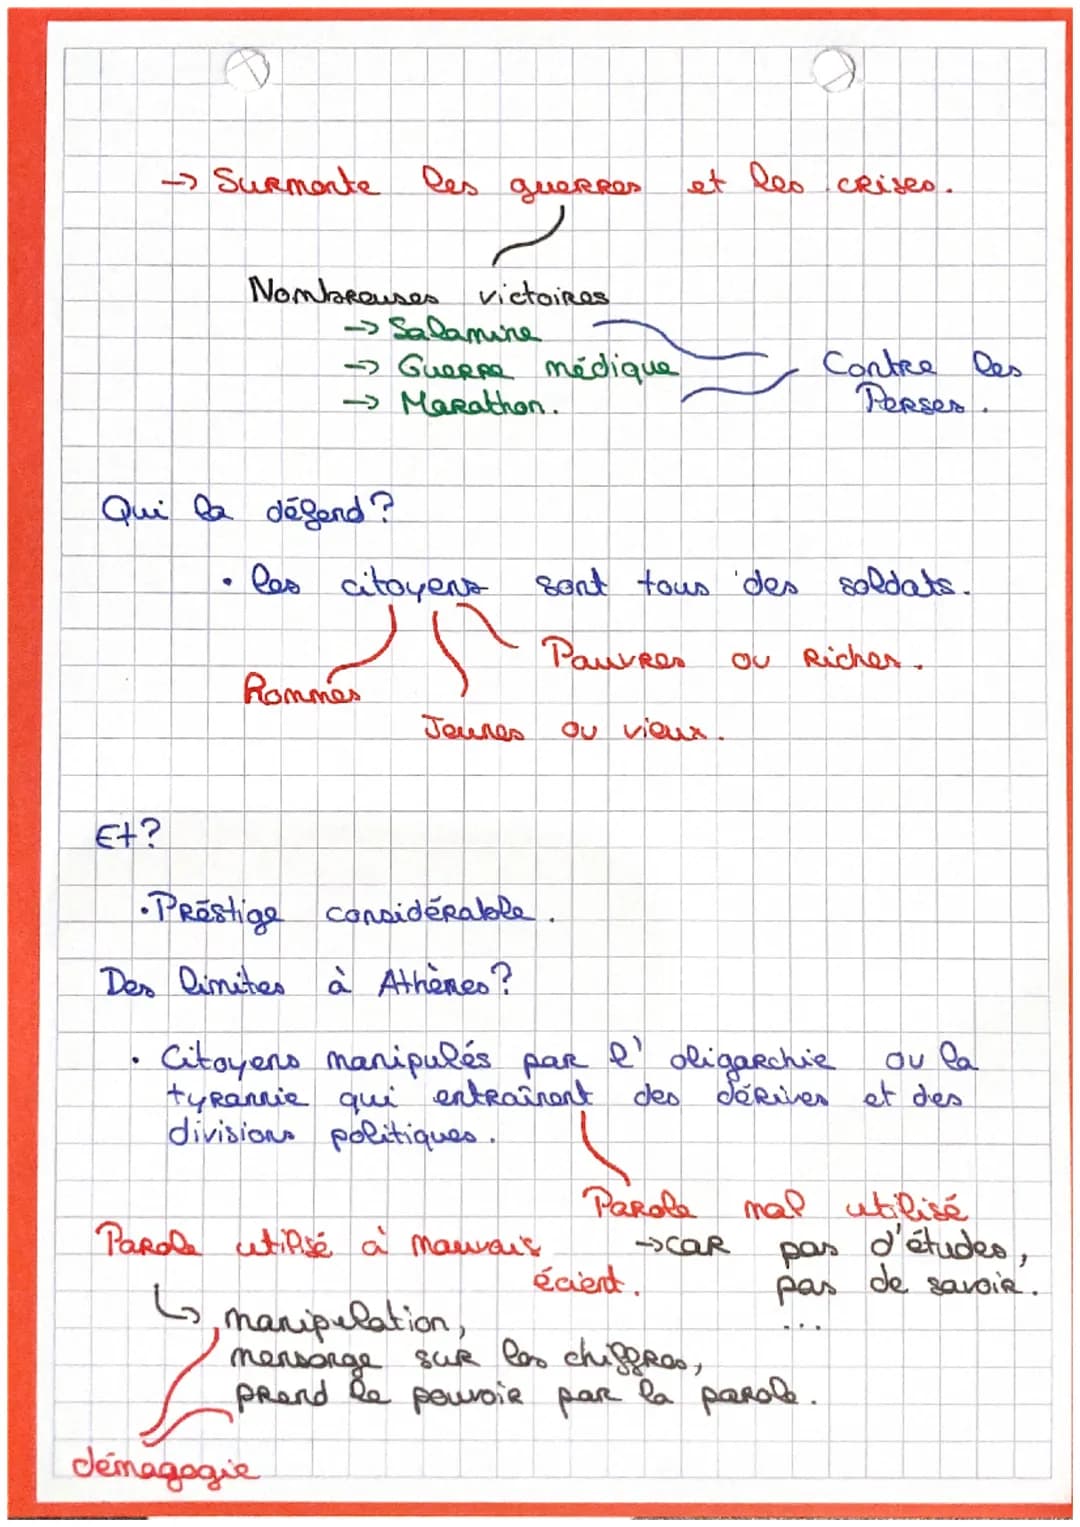 → Surmonte les guerres et les crises.
Nombreuses victoires
→ Salamine
→ Guerre médique
→ Marathon.
Contre les
Perses.
Qui la défend ?
• les citoyens sont tous des soldats.
Pauvres ou Riches.
Hommes
Jeunes ou vieux.
Et ?
• Préstige considérable.
Des limites à Athènes ?
• Citoyens manipulés par l'oligarchie ou la
tyrannie qui entraînent des dérives et des
divisions politiques.
Parole mal utilisé
→ car pas d'études,
pas de savoir.
...
Parole utilisé à mauvais
écient.
↳ manipulation,
mensonge sur les chiffres,
prend le pouvoir par la parole.
démagogie